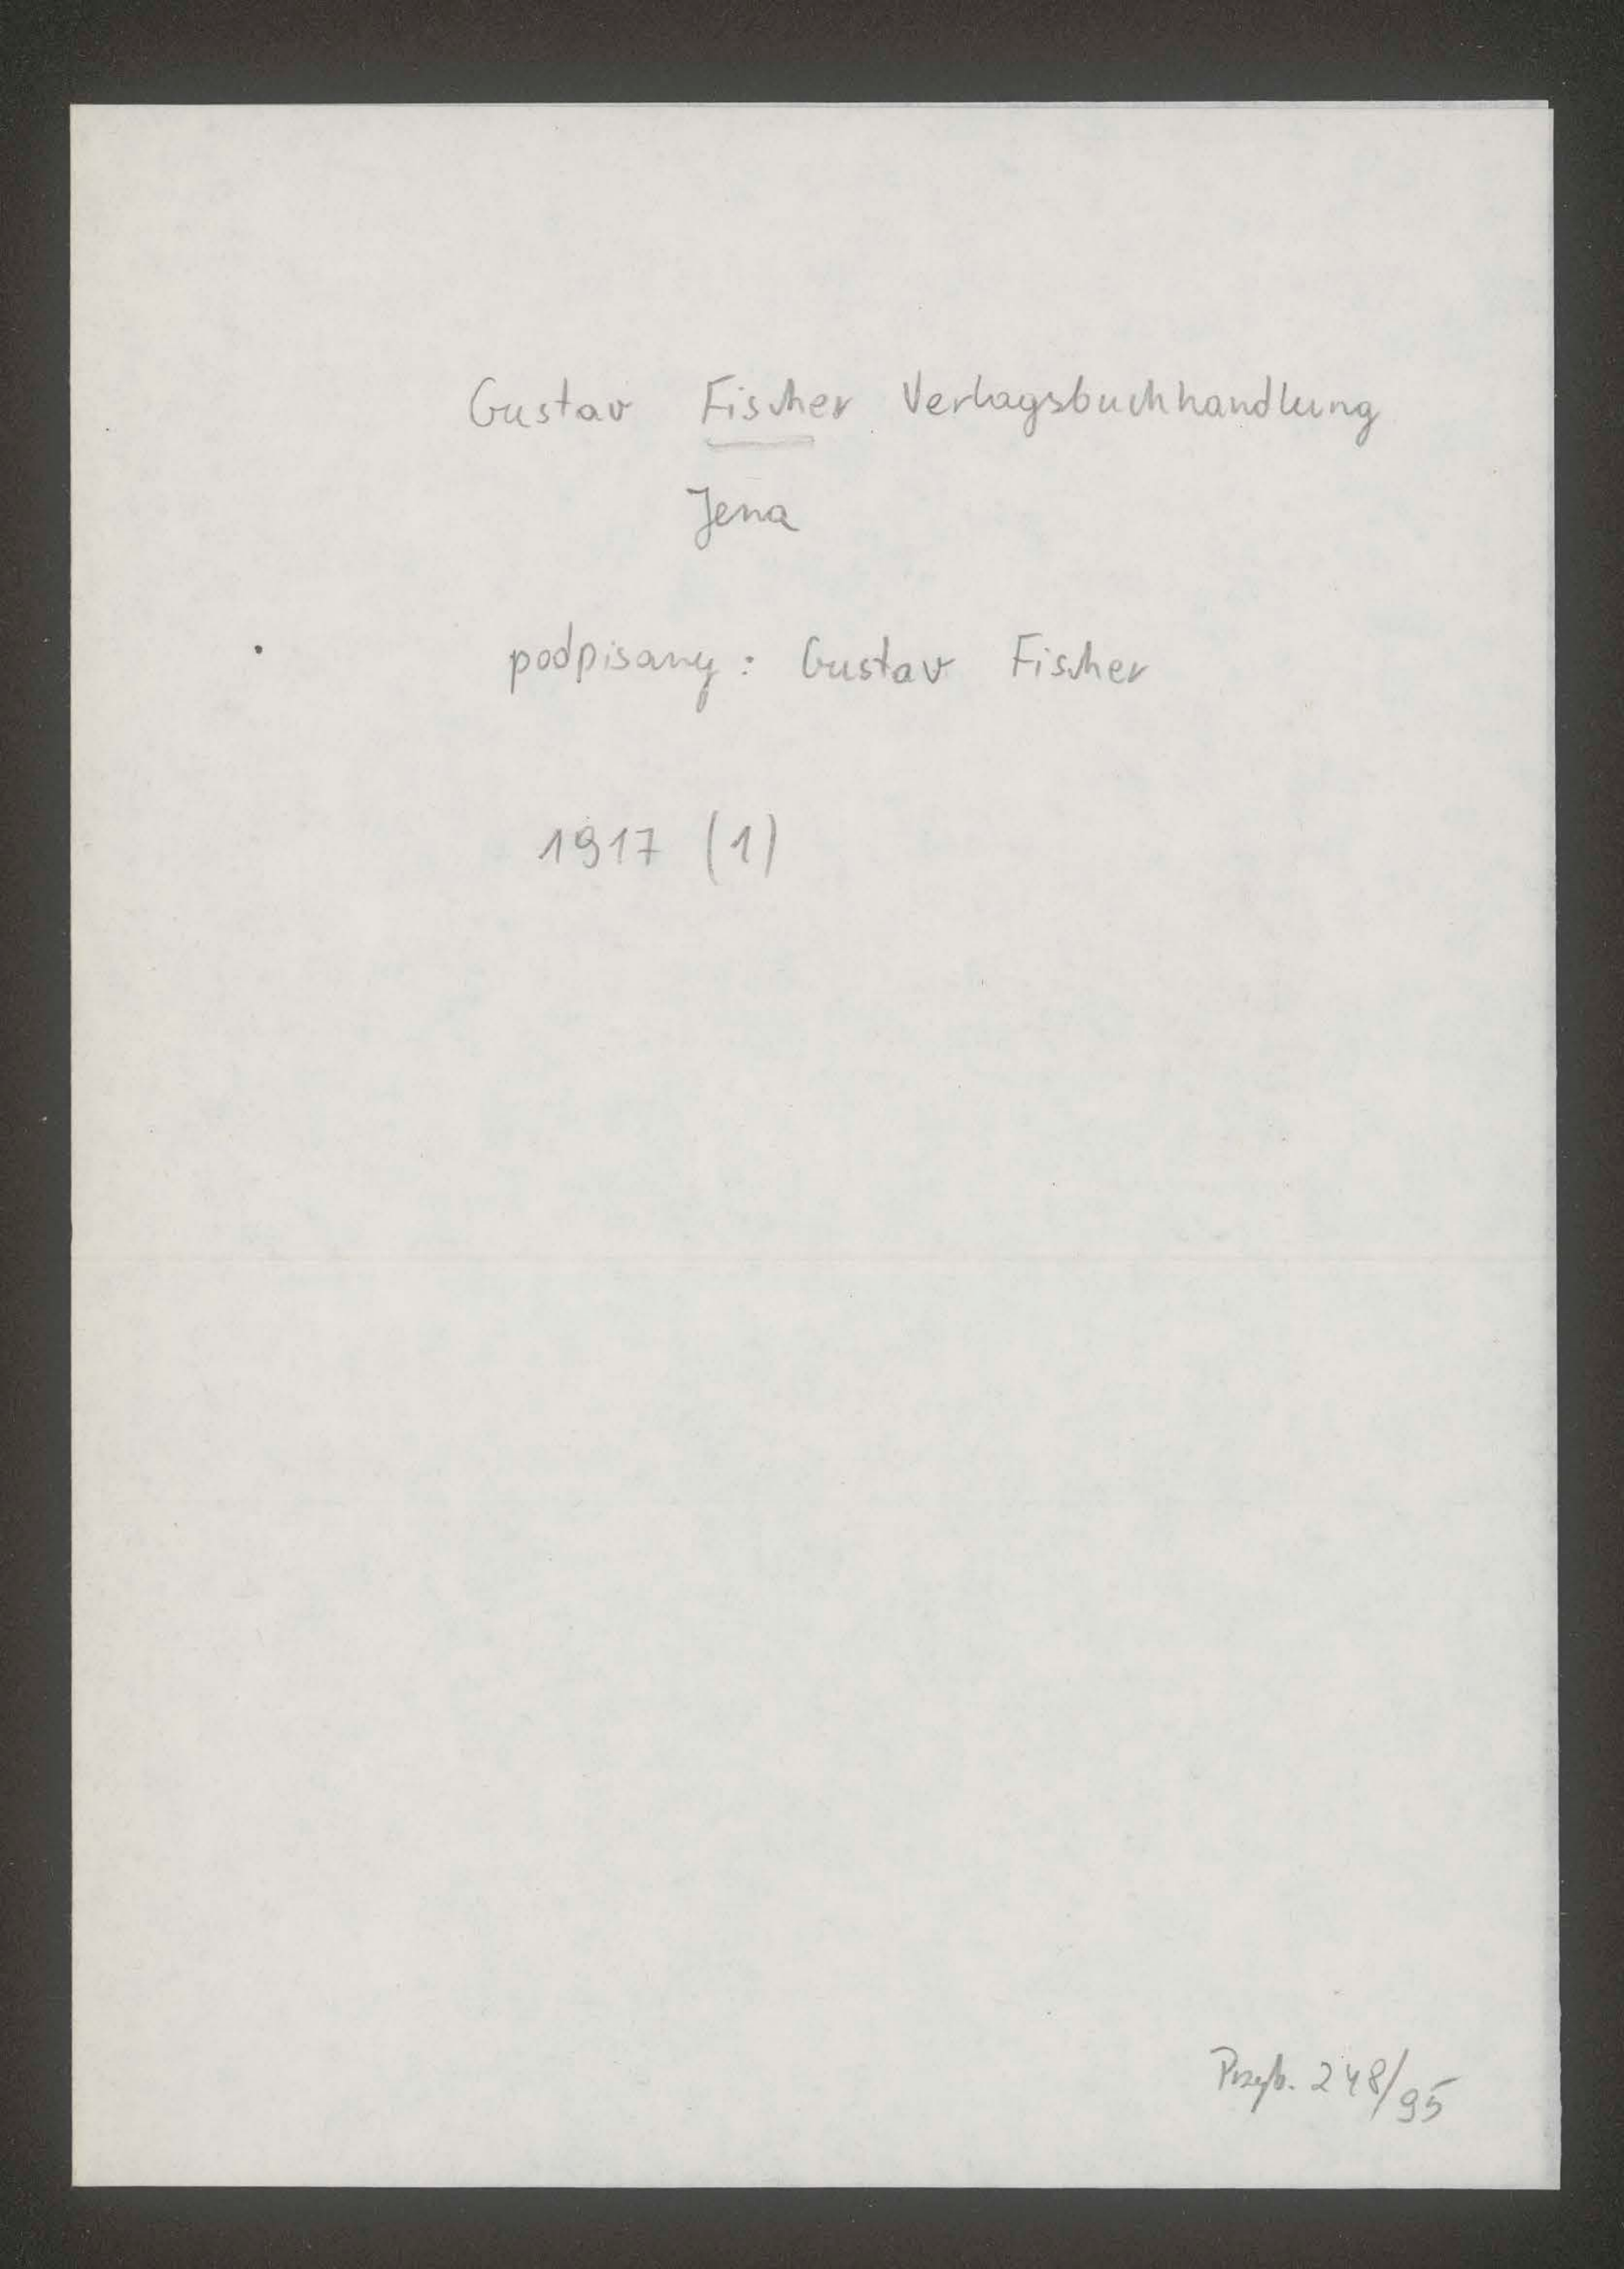 Gustav Fischer Verlagsbuchhandlung
Jena
podpisany: Gustav Fischer
1917 (1)
Przyb. 248/95